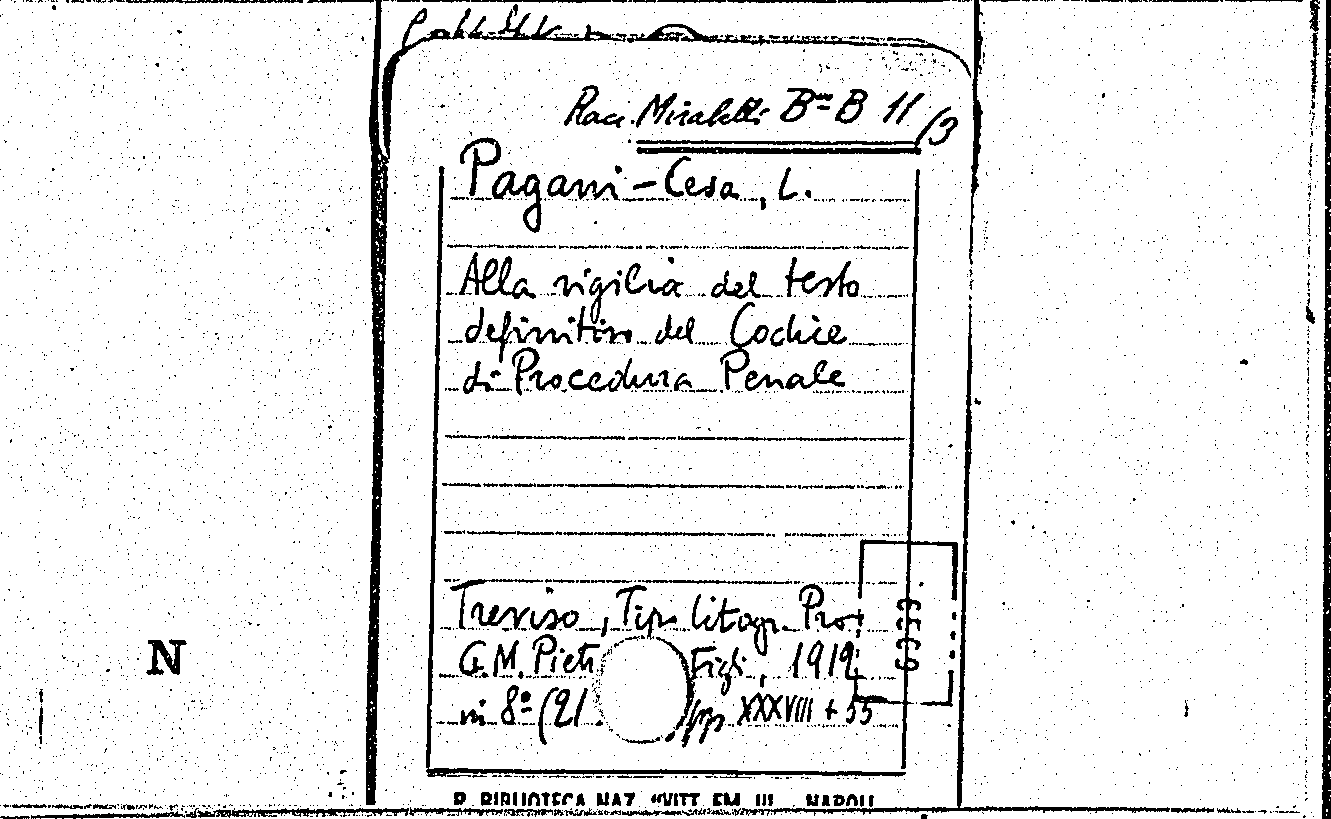 Racc. Miraletti B=B 11/3
Pagani-Cesa, L.
Alla vigilia del testo
definitivo del Codice
di Procedura Penale
Treviso, Tip. Litogr.
G. M. Figli, 1912
in 8º (21 pp XXXVIII + 55
N
R. BIBLIOTECA NAZ. "VITT. EM. III" NAPOLI